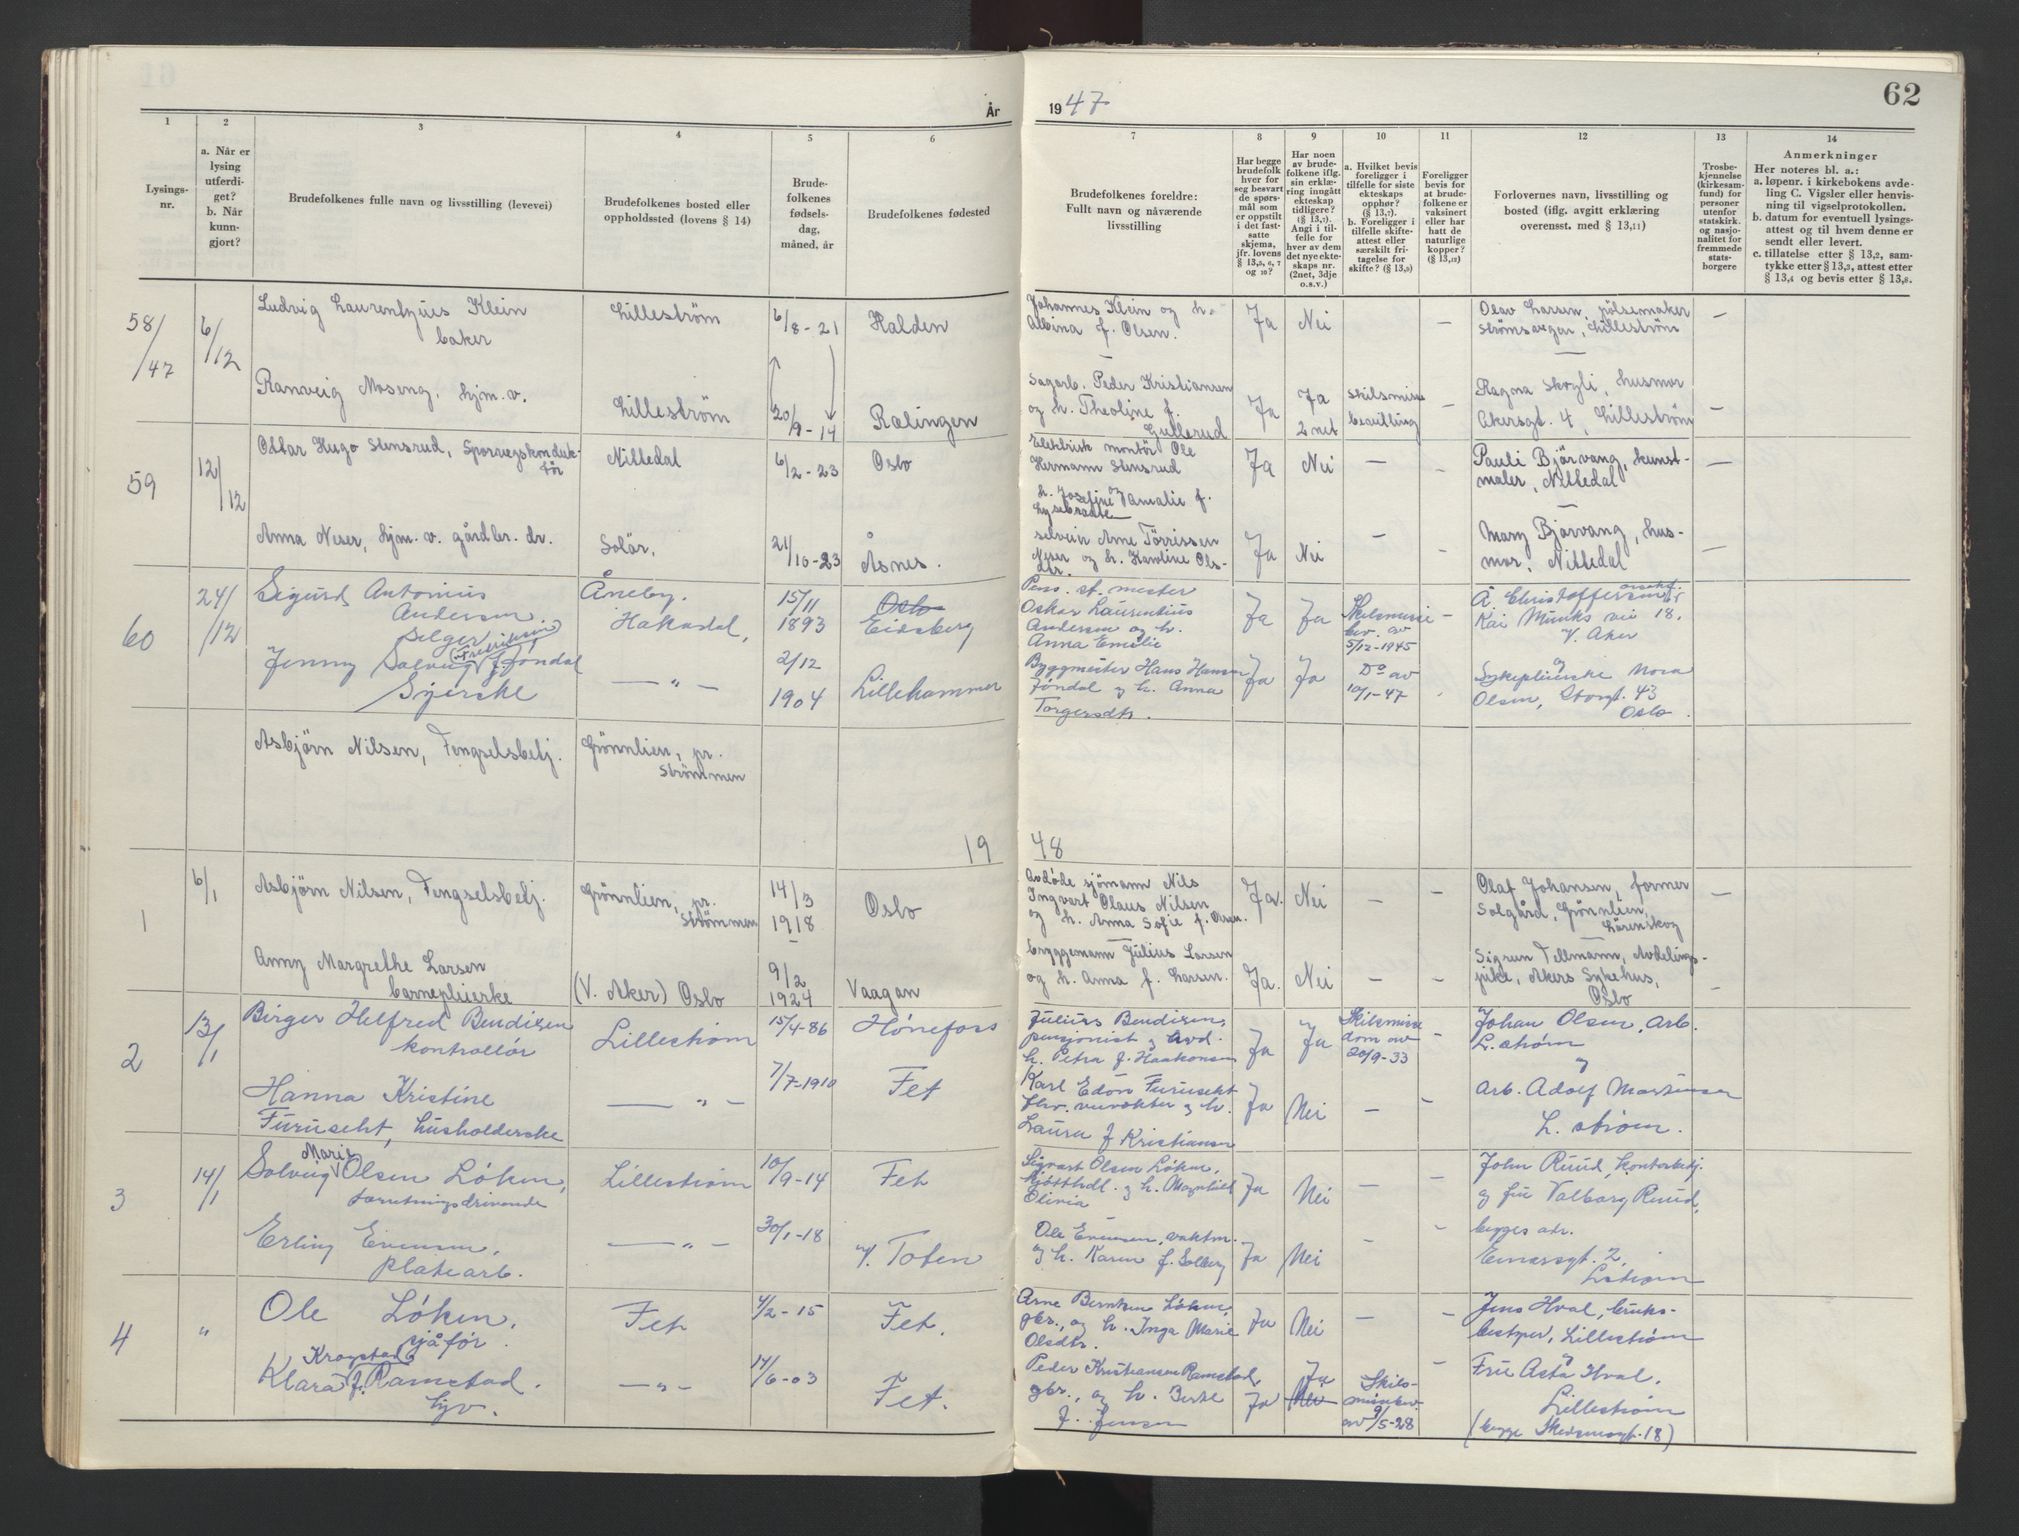 År 1947
62
1
2
3
4
5
6
7
8
9
10
11
12
13
14
Lysings-
nr.
a. Når er
lysing
utferdi-
get?
b. Når
kunn-
gjort?
Brudefolkenes fulle navn og livsstilling (levevei)
Brudefolkenes bosted eller
oppholdssted (lovens § 14)
Brude-
folkenes
fødsels-
dag,
måned, år
Brudefolkenes fødested
Brudefolkenes foreldre:
Fullt navn og nåværende
livsstilling
Har begge
brudefolk
hver for
seg besvart
de spørs-
mål som
er oppstilt
i det fast-
satte
skjema,
jfr. lovens
§ 13,5, 6, 7
og 10?
Har noen
av brude-
folkene iflg.
sin erklæ-
ring inngått
ekteskap
tidligere?
(§ 13,7).
Angi i til-
felle for
hver av dem
det nye ekte-
skaps nr.
(2net, 3dje
o.s.v.)
a. Hvilket bevis
foreligger i
tilfelle for siste
ekteskaps
opphør?
(§ 13,7).
b. Foreligger i
tilfelle skifte-
attest eller
særskilt fri-
tagelse for
skifte? (§ 13,9)
Foreligger
bevis for
at brude-
folkene er
vaksinert
eller har
hatt de
naturlige
kopper?
(§ 13,12)
Forlovernes navn, livsstilling og
bosted (iflg. avgitt erklæring
overensst. med § 13,11)
Trosbe-
kjennelse
(kirkesam-
fund) for
personer
utenfor
statskirk.
og nasjo-
nalitet for
fremmede
stats-
borgere
Anmerkninger
Her noteres bl. a.:
a. løpenr. i kirkebokens avde-
ling C. Vigsler eller henvis-
ning til vigselprotokollen.
b. datum for eventuell lysings-
attest og til hvem denne er
sendt eller levert.
c. tillatelse etter § 13,2, sam-
tykke etter § 13,3, attest etter
§ 13,4 og bevis etter § 13,8.
58/47
6/12
Ludvig Laurentzius Klein
baker
Lilleström
6/8-21
Halden
Johannes Klein og h.
Albina f. Olsen.
Ja
Nei
–
Olav Larsen, pölsemaker
Strömsvegen, Lilleström
–
Ranveig Moseng, hjm. v.
Lilleström
20/9-14
Rælingen
Sagarb. Peder Kristiansen
og h. Theoline f.
Gullerud
Ja
Ja
2 net
skilsmisse
bevilling
–
Ragna Skogli, husmor
Akersgt. 4, Lilleström
–
59
12/12
Ottar Hugo Stensrud, Sporvegskonduk-
tör
Nittedal
6/2-23
Oslo
Elektrisk montör Ole
Hermann Stensrud
og
h. Josefine Amalie f.
Lysebraate
Ja
Nei
–
–
Pauli Bjärvang, kunst-
maler, Nittedal
–
Anna Neser, hjm. v. gårdbr. dr.
Solör.
21/10-23
Åsnes.
selveier Arne Törrissen
Neser og h. Karoline Ols-
dtr.
Ja
Nei
–
–
Mary Bjärvang, hus-
mor, Nittedal
–
60
24/12
Sigurd Antonius
Andersen
Selger
Åneby,
Hakadal,
15/11
1893
Oslo
Eidsberg
Pens. st. mester
Oskar Laurentius
Andersen og h.
Anna Emilie
Ja
Ja
Skilsmisse
bev. av
5/12-1945
A. Christoffersen
Kai Munks vei 18,
V. Aker
og
Jenny Solveig (Fredriksen) f. Jöndal
Syerske
— " —
2/12
1904
Lillehammer
Byggmester Hans Hansen
Jöndal og h. Anna
Torgersdtr.
Ja
Ja
Do av
10/1-47
Sykepleierske Nora
Olsen, Storgt. 43
Oslo.
Asbjörn Nilsen, Fengselsbetj.
Grönnlien, pr.
Strömmen
1948
1
6/1
Asbjörn Nilsen, Fengselsbetj.
Grönnlien, pr.
Strömmen
14/3
1918
Oslo
Avdöde sjömann Nils
Ingvart Olaus Nilsen
og h. Anna Sofie f. Olsen.
Ja.
Nei
–
–
Olaf Johansen, former
Solgård, Grönnlien,
Lörenskog
–
Anny Margrethe Larsen
barnepleierske
(V. Aker) Oslo
9/2
1924
Vaagan
bryggemann Julius Larsen
og h. Anna f. Larsen.
Ja.
Nei
–
–
Sigrun Tellmann, Avdelings-
pike, Akers Sykehus,
Oslo
–
2
13/1
Birger Helfred Bendixen
kontrollör
Lillestrøm
15/4-86
Hønefoss
Julius Bendixen,
pensjonist og avd.
h. Petra f. Haakonsen
Ja
Ja
Skilsmisse
dom av
20/9-33
–
Johan Olsen, arb.
L.strøm
og
Hanna Kristine
Furuseht, husholderske
— " —
7/7-1910
Fet
Karl Edon Furuseht
og h.
Laura f Kristiansen
Ja
Nei
–
–
arb. Adolf Martinsen
L.strøm.
3
14/1
Solveig Marie Olsen Løken,
forretningsdrivende
Lillestrøm
10/9-14
Fet
Sigvart Olsen Løken,
kjøtthdl. og h. Magnhild
Olivia
Ja
Nei
–
–
John Ruud, kontorbetj.
og fru Valborg Ruud,
begges adr.
Erling Evensen,
platearb.
— " —
30/1-18
V. Toten
Ole Evensen, vaktm.
og h. Karen f. Solberg
Ja
Nei
–
–
L.strøm
4
"
Ole Løken,
sjåfør.
Fet
4/2-15
Fet.
Arne Berntsen Løken,
gbr., og h. Inga Marie
Olsdtr.
Ja
Nei
–
–
Jens Hval, bruks-
bestyrer, Lillestrøm
og
Klara Krogstad f. Ramstad.
hjv.
— " —
14/6-03
Fet.
Peder Kristiansen Ramstad,
gbr., og h. Berte
f. Jensen
Ja
Ja
Nei
Skils-
missebev.
av 9/5-28
–
Fru Asta Hval,
Lillestrøm